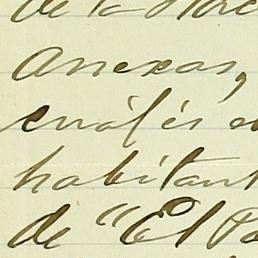 de la
Anexas,
cuál es e
habitant
de "El Pa